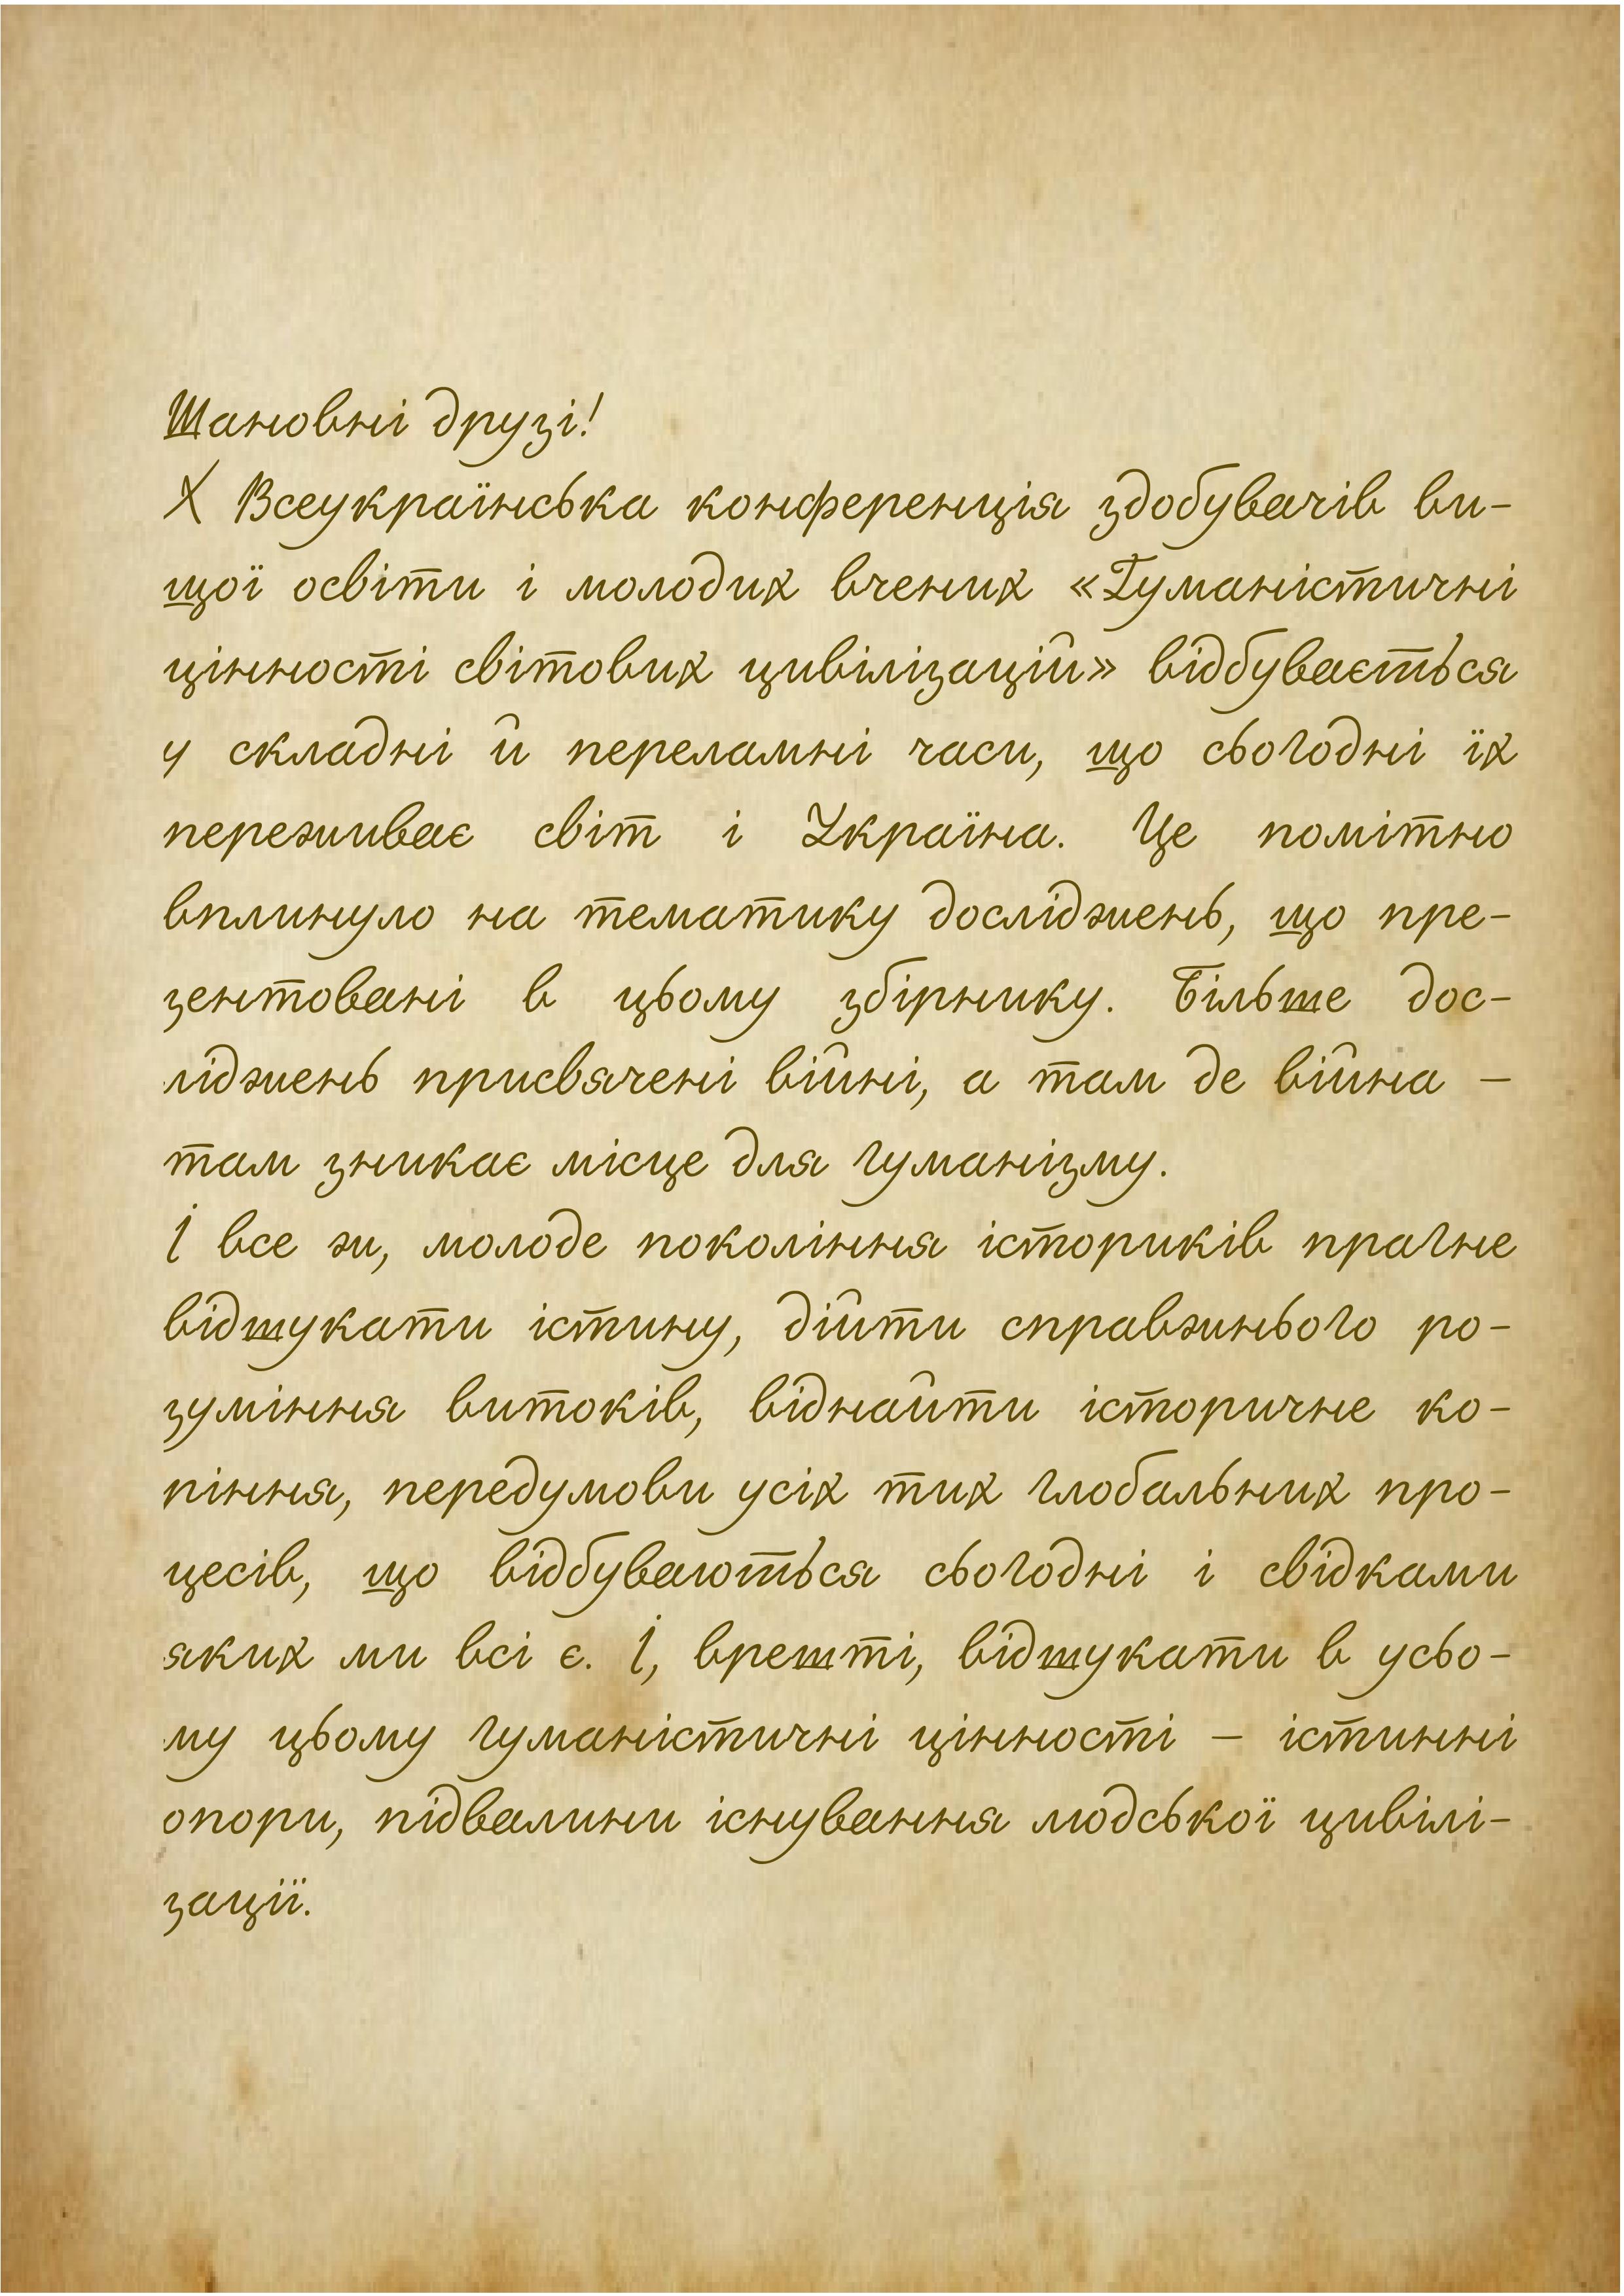 Шановні друзі!
X Всеукраїнська конференція здобувачів ви-
щої освіти і молодих вчених «Гуманістичні
цінності світових цивілізацій» відбувається
у складні й переламні часи, що сьогодні їх
переживає світ і Україна. Це помітно
вплинуло на тематику досліджень, що пре-
зентовані в цьому збірнику. Більше дос-
ліджень присвячені війні, а там де війна –
там зникає місце для гуманізму.
І все ж, молоде покоління істориків прагне
відшукати істину, дійти справжнього ро-
зуміння витоків, віднайти історичне ко-
ріння, передумови усіх тих глобальних про-
цесів, що відбуваються сьогодні і свідками
яких ми всі є. І, врешті, відшукати в усьо-
му цьому гуманістичні цінності – істинні
опори, підвалини існування людської цивілі-
зації.